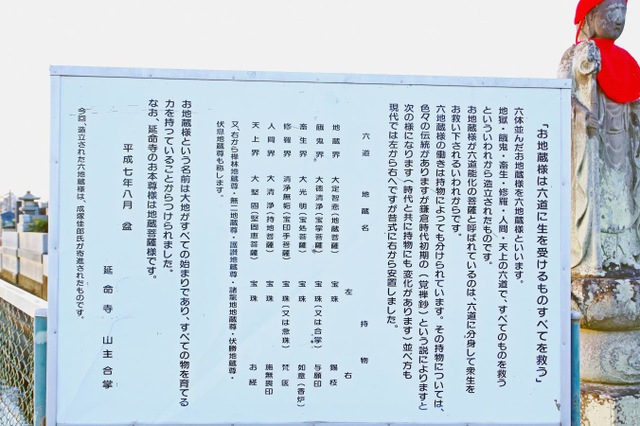 「お地蔵様は六道に生を受けるものすべてを救う」
六体並んだお地蔵様を六地蔵様といいます。
地獄・餓鬼・畜生・修羅・人間・天上の六道で、すべてのものを救う
といういわれから造立されたものです。
お地蔵様が六道能化の菩薩と呼ばれているのは、六道に分身して衆生を
お救い下されるいわれからです。
六地蔵様の働きは持物によっても分けられています。その持物については、
色々の伝統がありますが鎌倉時代初期の（覚禅鈔）という説によりますと
次の様になります（時代と共に持物にも変化があります）並べ方も
現代では左から右へですが昔式に右から安置しました。
六道 地蔵名 左 持物 右
地蔵界 大定智悲（地蔵菩薩） 宝珠 錫杖
餓鬼界 大徳清浄（宝掌菩薩） 宝珠（又は合掌） 与願印
畜生界 大光明（宝処菩薩） 宝珠 如意（香炉）
修羅界 清浄無垢（宝印手菩薩） 宝珠（又は意珠） 梵匧
人間界 大清浄（持地菩薩） 宝珠 施無畏印
天上界 大堅固（堅固意菩薩） 宝珠 お経
又、右から禅林地蔵尊・無二地蔵尊・護讃地蔵尊・諸龍地蔵尊・伏勝地蔵尊・
伏息地蔵尊も称します。
お地蔵様という名前は大地がすべての始まりであり、すべての物を育てる
力を持っていることからつけられました。
なお、延命寺のお本尊様は地蔵菩薩様です。
平成七年八月 盆
延命寺 山主 合掌
今回、造立された六地蔵様は、成塚佳郎氏が寄進されたものです。